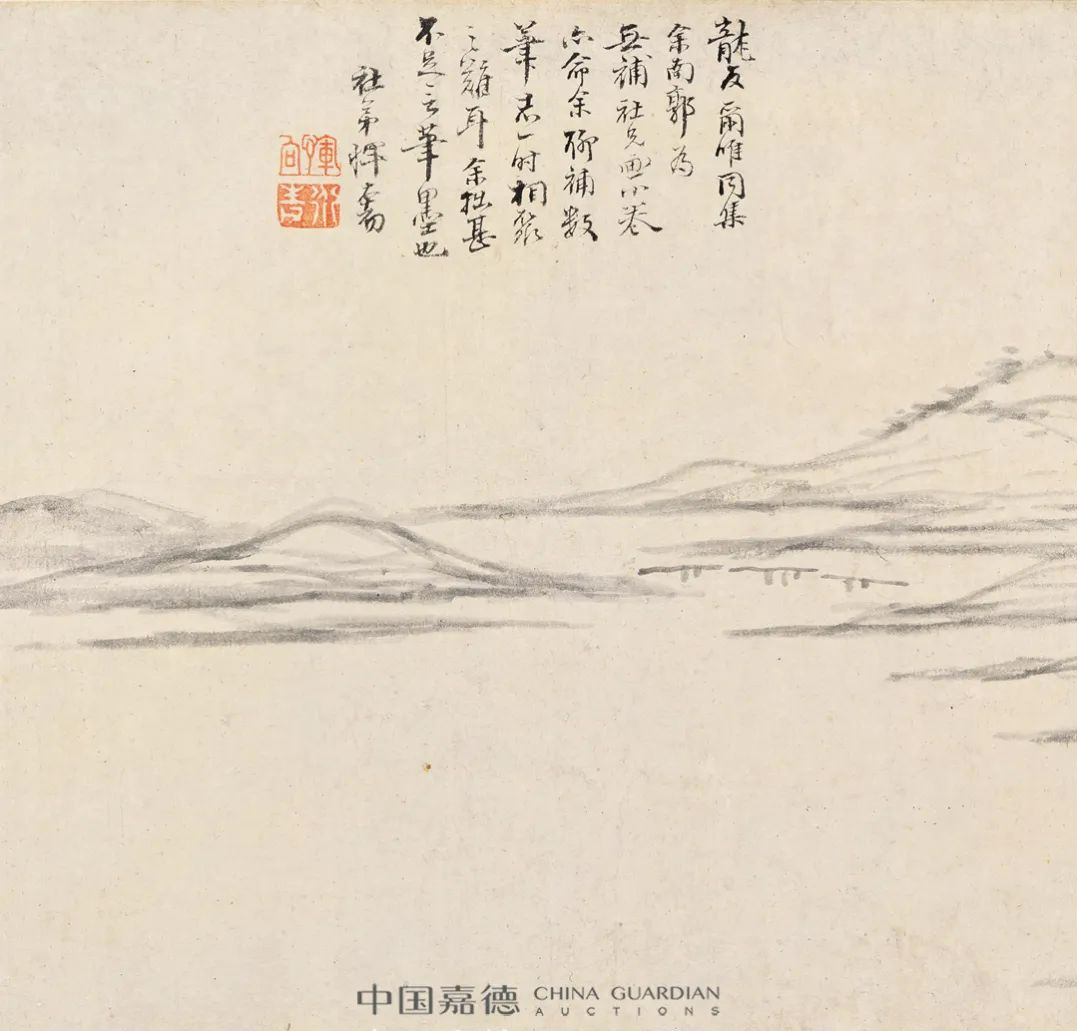 龍友爾唯同集
余南郭為
無補社兄画小卷
亦命余聊補数
筆志一时相聚
之難耳余拙甚
不足言筆墨也
社弟惲
惲向
中国嘉德 CHINA GUARDIAN
AUCTIONS